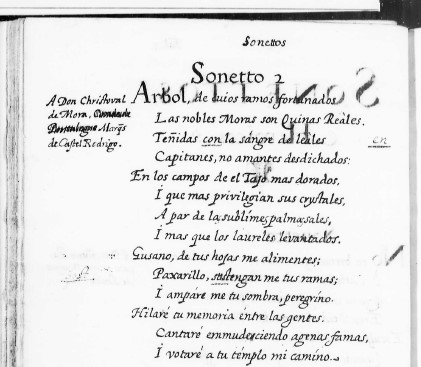 Sonettos
Sonetto 2
A Don Christoval
de Mora,
Marq̃s
de Castel Rodrigo.
Arbol, de cuios ramos fortunados
Las nobles Moras son Quinas Reales,
Teñidas con la sangre de leales
en
Capitanes, no amantes desdichados:
En los campos de el Tajo mas dorados,
I que mas privilegian sus crystales,
A par de las sublimes palmas sales,
I mas que los laureles levantados.
Gusano, de tus hojas me alimentes;
Paxarillo, sustengan me tus ramas;
I ampáre me tu sombra, peregrino.
Hilaré tu memoria éntre las gentes.
Cantaré enmudeciendo agenas famas,
I votaré a tu témplo mi camino.